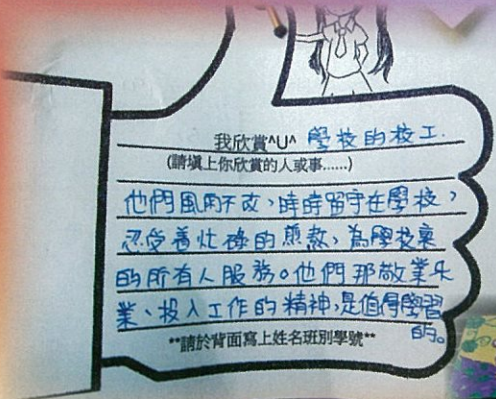 我欣賞^U^ 學校的校工.
(請填上你欣賞的人或事......)
他們風雨不改，時時留守在學校，
忍受着忙碌的煎熬，為學校裏
的所有人服務。他們那敬業乐
業、投入工作的精神，是值得學習
的。
**請於背面寫上姓名班別學號**